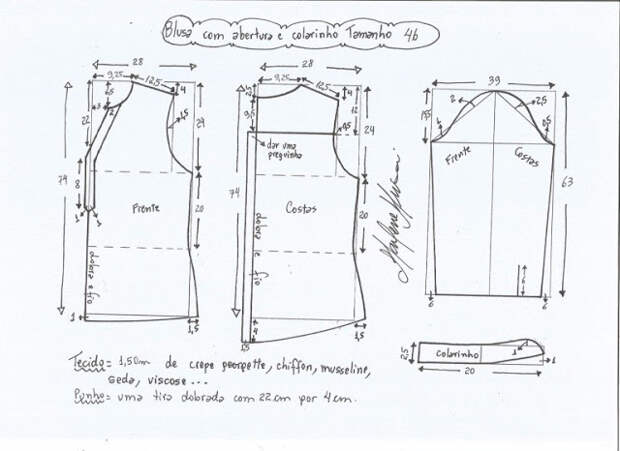 Blusa com abertura e colarinho Tamanho 46
28
9,25
12,5
4
2,5
3
2
22
1,5
24
74
8
1
1
Frente
20
dobra e fio
1
1,5
28
9,25
12,5
4
2,5
9,5
12
0,5
24
dar uma preguinha
74
Costas
20
dobra e fio
4
1,5
1,5
39
2
2,5
15,5
1
0,5
Frente
Costas
63
6
6
6
Marlene Mukai
2,5
colarinho
1
1
20
Tecido = 1,50m de crepe georgette, chiffon, musseline,
seda, viscose ...
Punho = uma tira dobrada com 22 cm por 4 cm.